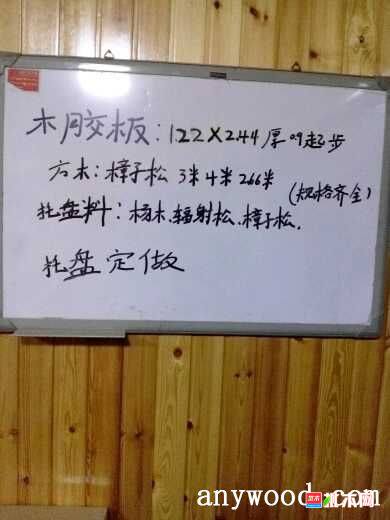 木胶板:122×244厚09起步
方木:樟子松 3米4米266米
(规格齐全)
托盘料:杨木.辐射松.樟子松.
托盘定做
anywood.com
木网